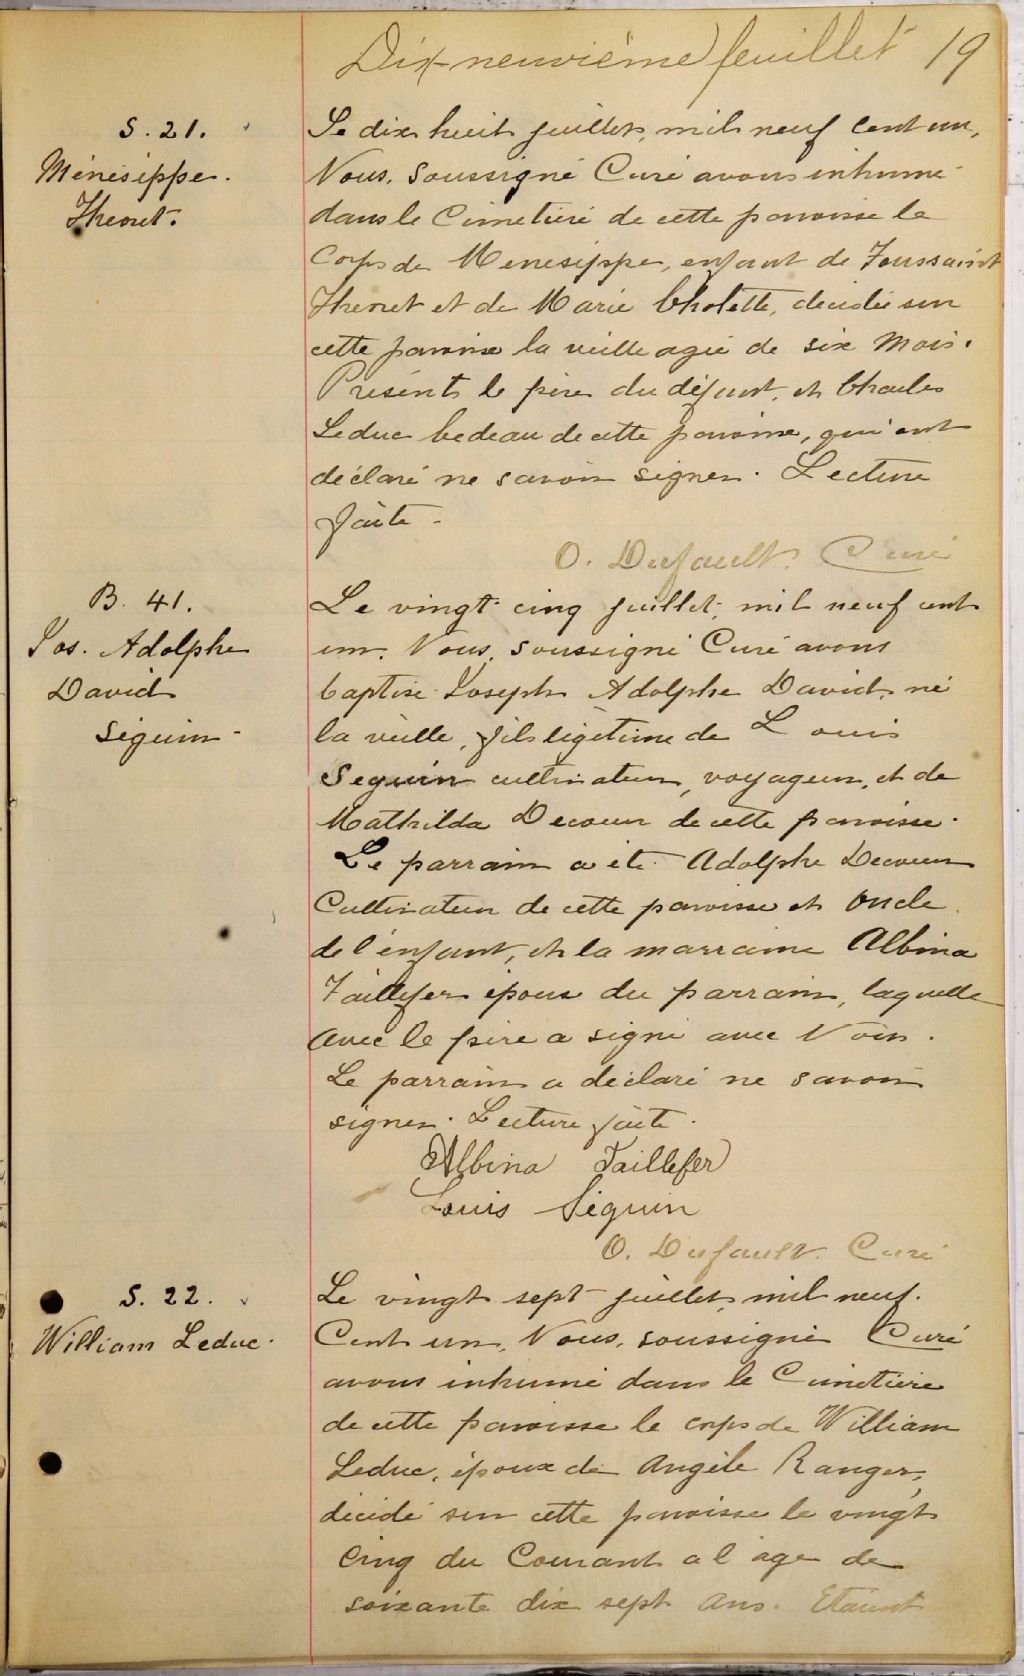 Dix-neuvième feuillet 19
S. 21.
Ménésippe.
Thenet.
Le dix huit juillet, mil neuf cent un,
Nous, soussigné Curé avons inhumé
dans le Cimetière de cette paroisse le
Corps de Menesippe, enfant de Toussaint
Thenet et de Marie Cholette, decidée sur
cette paroisse la veille agée de six mois.
Présents le père du défunt, et Charles
Leduc bedeau de cette paroisse, qui ont
déclaré ne savoir signer. Lecture
faite.
O. Dufault. Curé
B. 41.
Jos. Adolphe
David
Séguin
Le vingt cinq juillet, mil neuf cent
un. Nous, soussigné Curé avons
baptisé Joseph Adolphe David, né
la veille, fils légitime de Louis
Seguin cultivateur, voyageur, et de
Mathilda Decoeur de cette paroisse.
Le parrain a été Adolphe Decoeur
Cultivateur de cette paroisse et Oncle
de l'enfant, et la marraine Albina
Taillefer épouse du parrain, laquelle
avec le père a signé avec Nous.
Le parrain a déclaré ne savoir
signer. Lecture faite.
Albina Taillefer
Louis Séguin
O. Dufault. Curé
S. 22.
William Leduc.
Le vingt sept juillet, mil neuf.
Cent un, Nous, soussigné Curé
avons inhumé dans le Cimetière
de cette paroisse le corps de William
Leduc, époux de Angèle Ranger,
décidé sur cette paroisse le vingt
Cinq du Courant a l'age de
soixante dix sept ans. Etaient